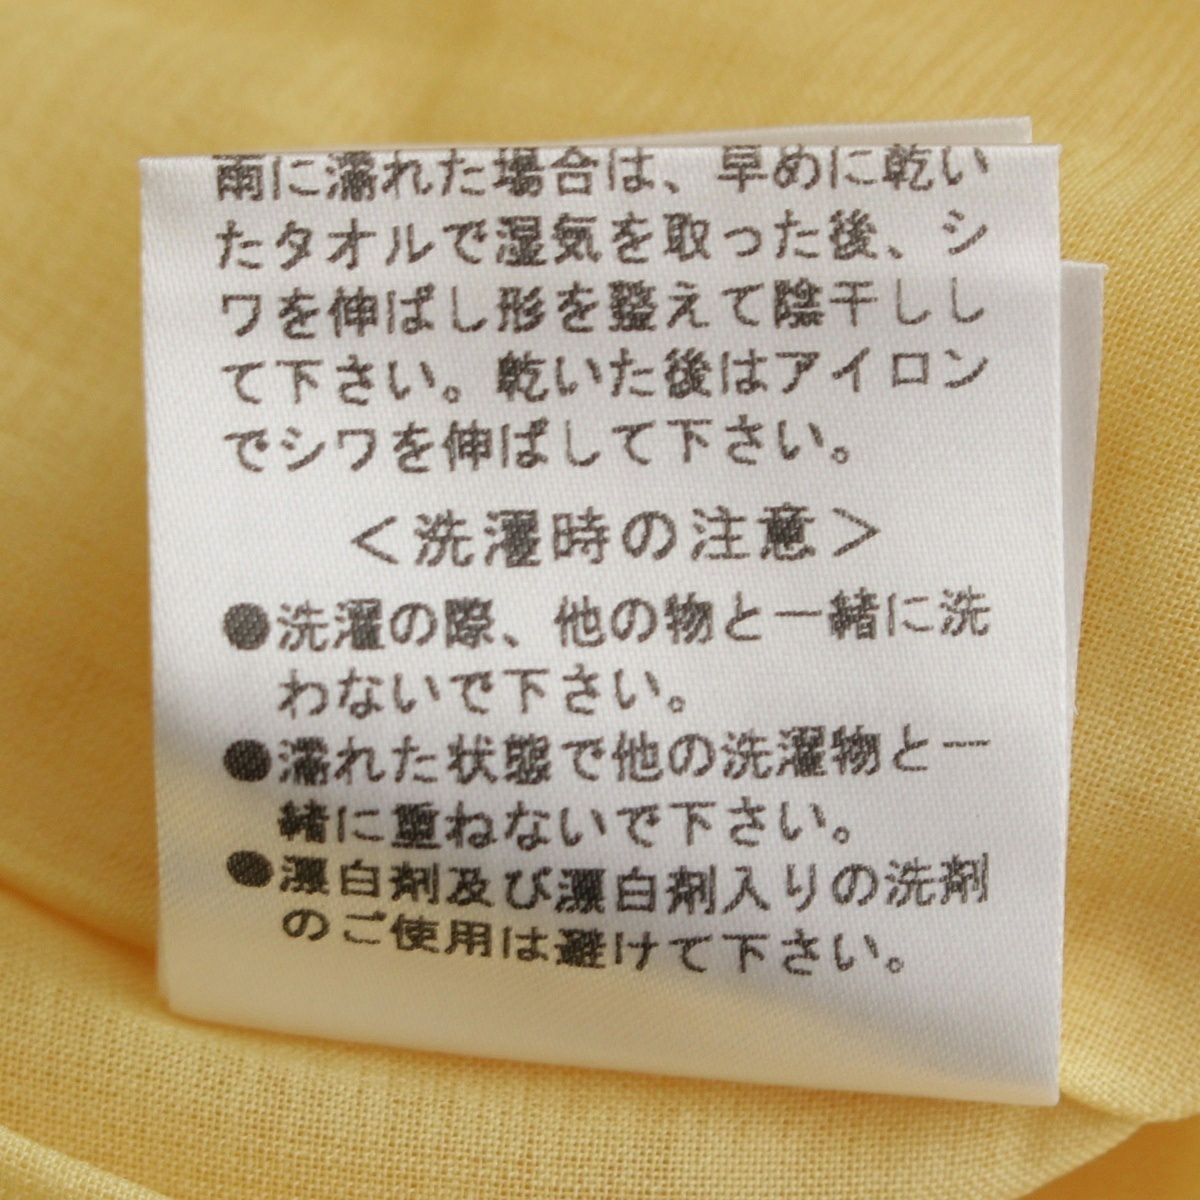 雨に濡れた場合は、早めに乾い
たタオルで湿気を取った後、シ
ワを伸ばし形を整えて陰干しし
て下さい。乾いた後はアイロン
でシワを伸ばして下さい。
＜洗濯時の注意＞
●洗濯の際、他の物と一緒に洗
わないで下さい。
●濡れた状態で他の洗濯物と一
緒に重ねないで下さい。
●漂白剤及び漂白剤入りの洗剤
のご使用は避けて下さい。